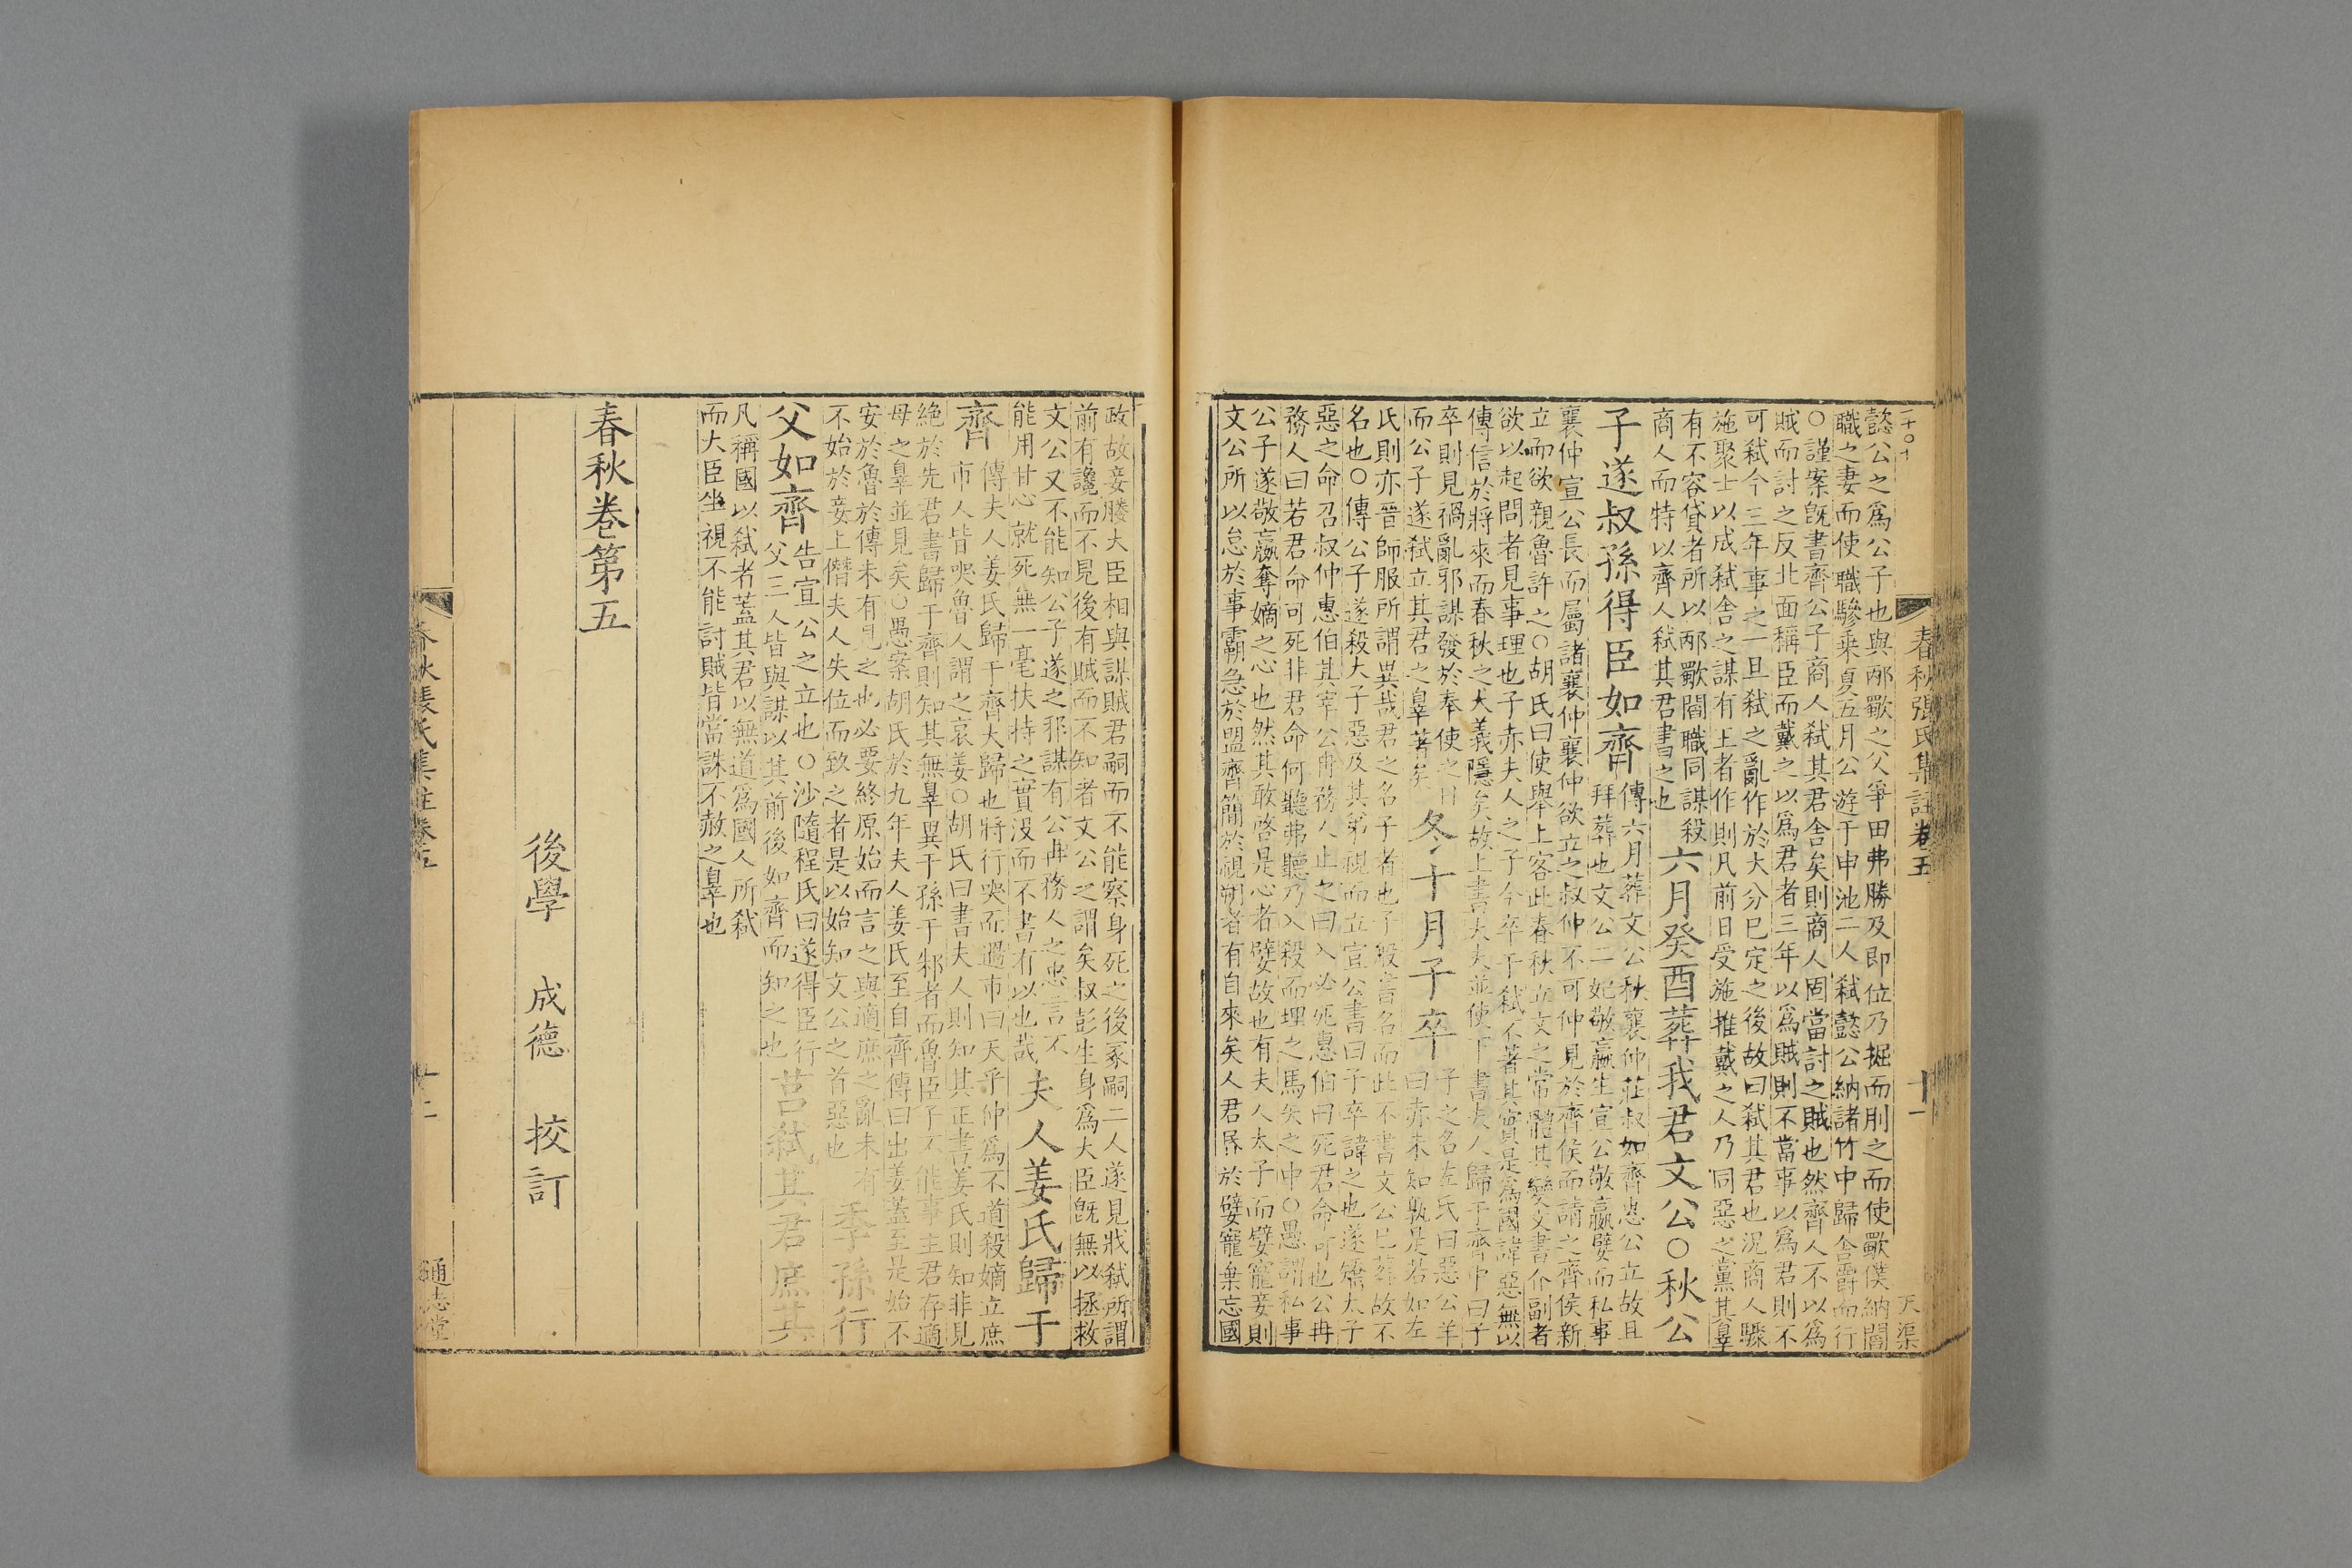 懿公之爲公子也與邴歜之父爭田弗勝及即位乃掘而刖之而使歜僕納閻
職之妻而使職驂乘夏五月公遊于申池二人弑懿公納諸竹中歸舍爵而行
○謹案旣書齊公子商人弑其君舍矣則商人固當討之賊也然齊人不以爲
賊而討之反北面稱臣而戴之以爲君者三年以爲賊則不當事以爲君則不
可弑今三年事之一旦弑之亂作於大分已定之後故曰弑其君也況商人驟
施聚士以成弑舍之謀有上者作則凡前日受施推戴之人乃同惡之黨其辠
有不容貸者所以邴歜閻職同謀殺
商人而特以齊人弑其君書之也
六月癸酉葬我君文公○秋公
子遂叔孫得臣如齊
傳六月葬文公秋襄仲莊叔如齊惠公立故且
拜葬也文公二妃敬嬴生宣公敬嬴嬖而私事
襄仲宣公長而屬諸襄仲襄仲欲立之叔仲不可仲見於齊侯而請之齊侯新
立而欲親魯許之○胡氏曰使舉上客此春秋立文之常體其變文書介副者
欲以起問者見事理也子赤夫人之子今卒于弑不著其實是爲國諱惡無以
傳信於將來而春秋之大義隱矣故上書大夫並使下書夫人歸于齊中曰子
卒則見禍亂邪謀發於奉使之日
而公子遂弑立其君之辠著矣
冬十月子卒
子之名左氏曰惡公羊
曰赤未知孰是若如左
氏則亦晉師服所謂異哉君之名子者也子般書名而此不書文公已葬故不
名也○傳公子遂殺大子惡及其弟視而立宣公書曰子卒諱之也遂矯大子
惡之命召叔仲惠伯其宰公冉務人止之曰入必死惠伯曰死君命可也公冉
務人曰若君命可死非君命何聽弗聽乃入殺而埋之馬矢之中○愚謂私事
公子遂敬嬴奪嫡之心也然其敢啓是心者嬖故也有夫人太子而嬖寵妾則
文公所以怠於事霸急於盟齊簡於視朔者有自來矣人君昬於嬖寵棄忘國
春秋張氏集註卷五
十一
天渠
政故妾媵大臣相與謀賊君嗣而不能察身死之後冢嗣二人遂見戕弑所謂
前有讒而不見後有賊而不知者文公之謂矣叔彭生身爲大臣旣無以拯救
文公又不能知公子遂之邪謀有公冉務人之忠言不
能用甘心就死無一毫扶持之實沒而不書有以也哉
夫人姜氏歸于
齊
傳夫人姜氏歸于齊大歸也將行哭而過市曰天乎仲爲不道殺嫡立庶
市人皆哭魯人謂之哀姜○胡氏曰書夫人則知其正書姜氏則知非見
絕於先君書歸于齊則知其無辠異于孫于邾者而魯臣子不能事主君存適
母之辠並見矣○愚案胡氏於九年夫人姜氏至自齊傳曰出姜蓋至是始不
安於魯於傳未有見之也必要終原始而言之與適庶之亂未有
不始於妾上僭夫人失位而致之者是以始知文公之首惡也
季孫行
父如齊
告宣公之立也○沙隨程氏曰遂得臣行
父三人皆與謀以其前後如齊而知之也
莒弑其君庶其
凡稱國以弑者蓋其君以無道爲國人所弑
而大臣坐視不能討賊皆當誅不赦之辠也
春秋卷第五
後學 成德 挍訂
春秋張氏集註卷五
十二
通志堂